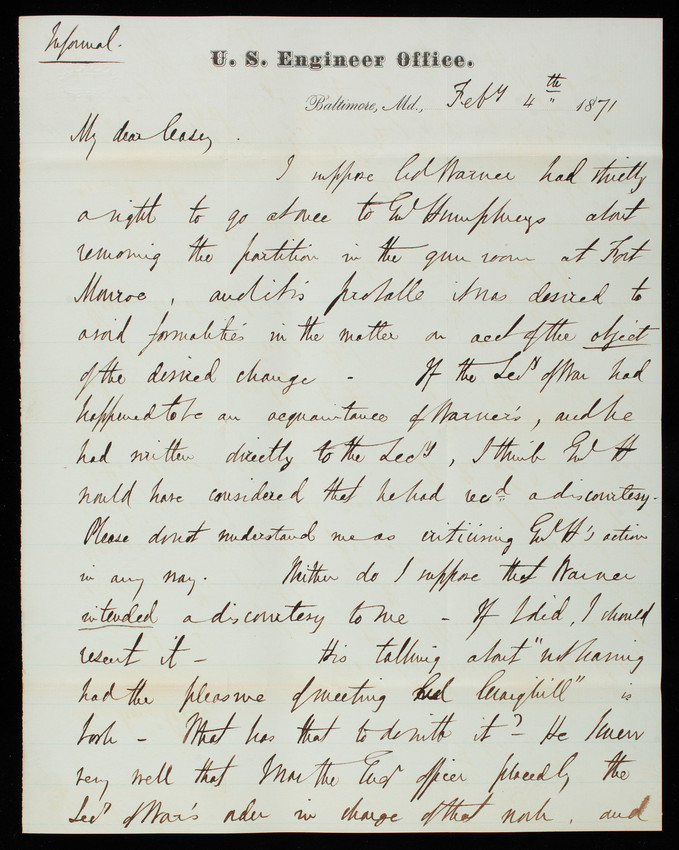 Informal.
U. S. Engineer Office.
Baltimore, Md., Feby 4th 1871
My dear Casey.
I suppose Col Warner had strictly
a right to go at once to Genl Humphreys about
removing the partition in the gun room at Fort
Monroe, and it is probable it was desired to
avoid formalities in the matter on acct of the object
of the desired change - If the Secy of War had
happened to be an acquaintance of Warner's, and he
had written directly to the Secy, I think Genl H
would have considered that he had recd a discourtesy.
Please do not understand me as criticising Genl H's action
in any way. Neither do I suppose that Warner
intended a discourtesy to me - If I did, I should
resent it - His talking about "not having
had the pleasure of meeting Col Craighill" is
bosh - What has that to do with it? - He knew
very well that I was the Engr officer placed by the
Secy of War's order in charge of that work, and